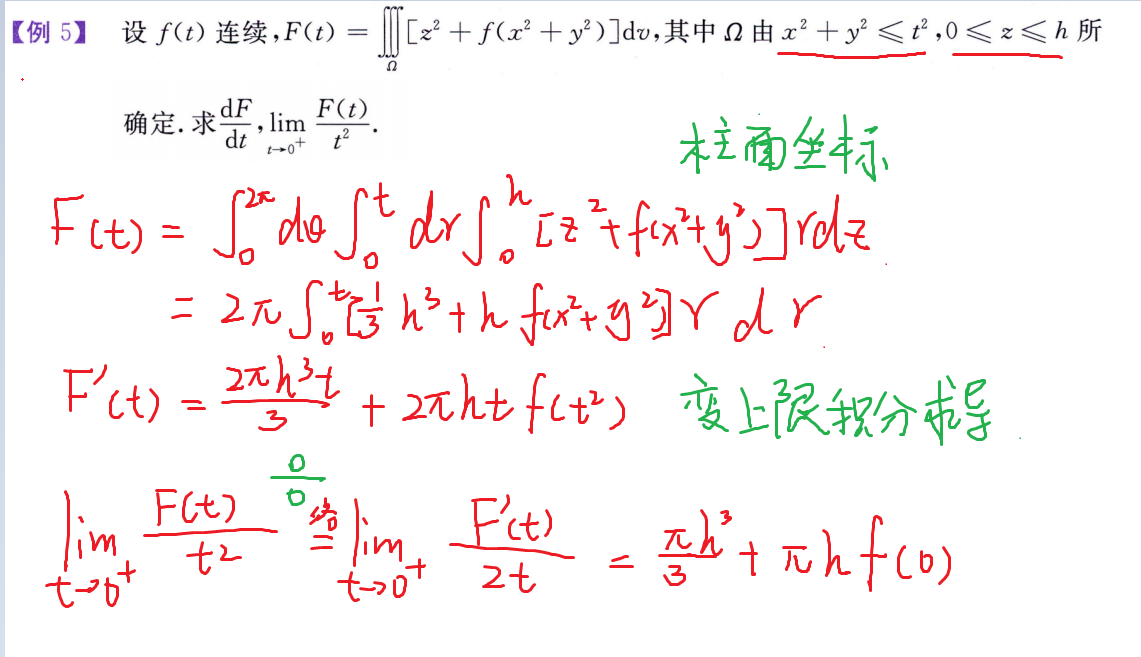 【例 5】 设 f(t) 连续,F(t) = ∭_Ω [z² + f(x² + y²)]dv,其中 Ω 由 x² + y² ≤ t²,0 ≤ z ≤ h 所
确定. 求 dF/dt, lim_{t→0⁺} F(t)/t².
柱面坐标
F(t) = ∫₀^{2π} dθ ∫₀^t dr ∫₀^h [z²+f(x²+y²)]rdz
= 2π ∫₀^t [1/3 h³ + h f(x²+y²)] r dr
F′(t) = 2πh³t/3 + 2πht f(t²) 变上限积分求导
lim_{t→0⁺} F(t)/t² 0/0 洛= lim_{t→0⁺} F′(t)/2t = πh³/3 + πh f(0)